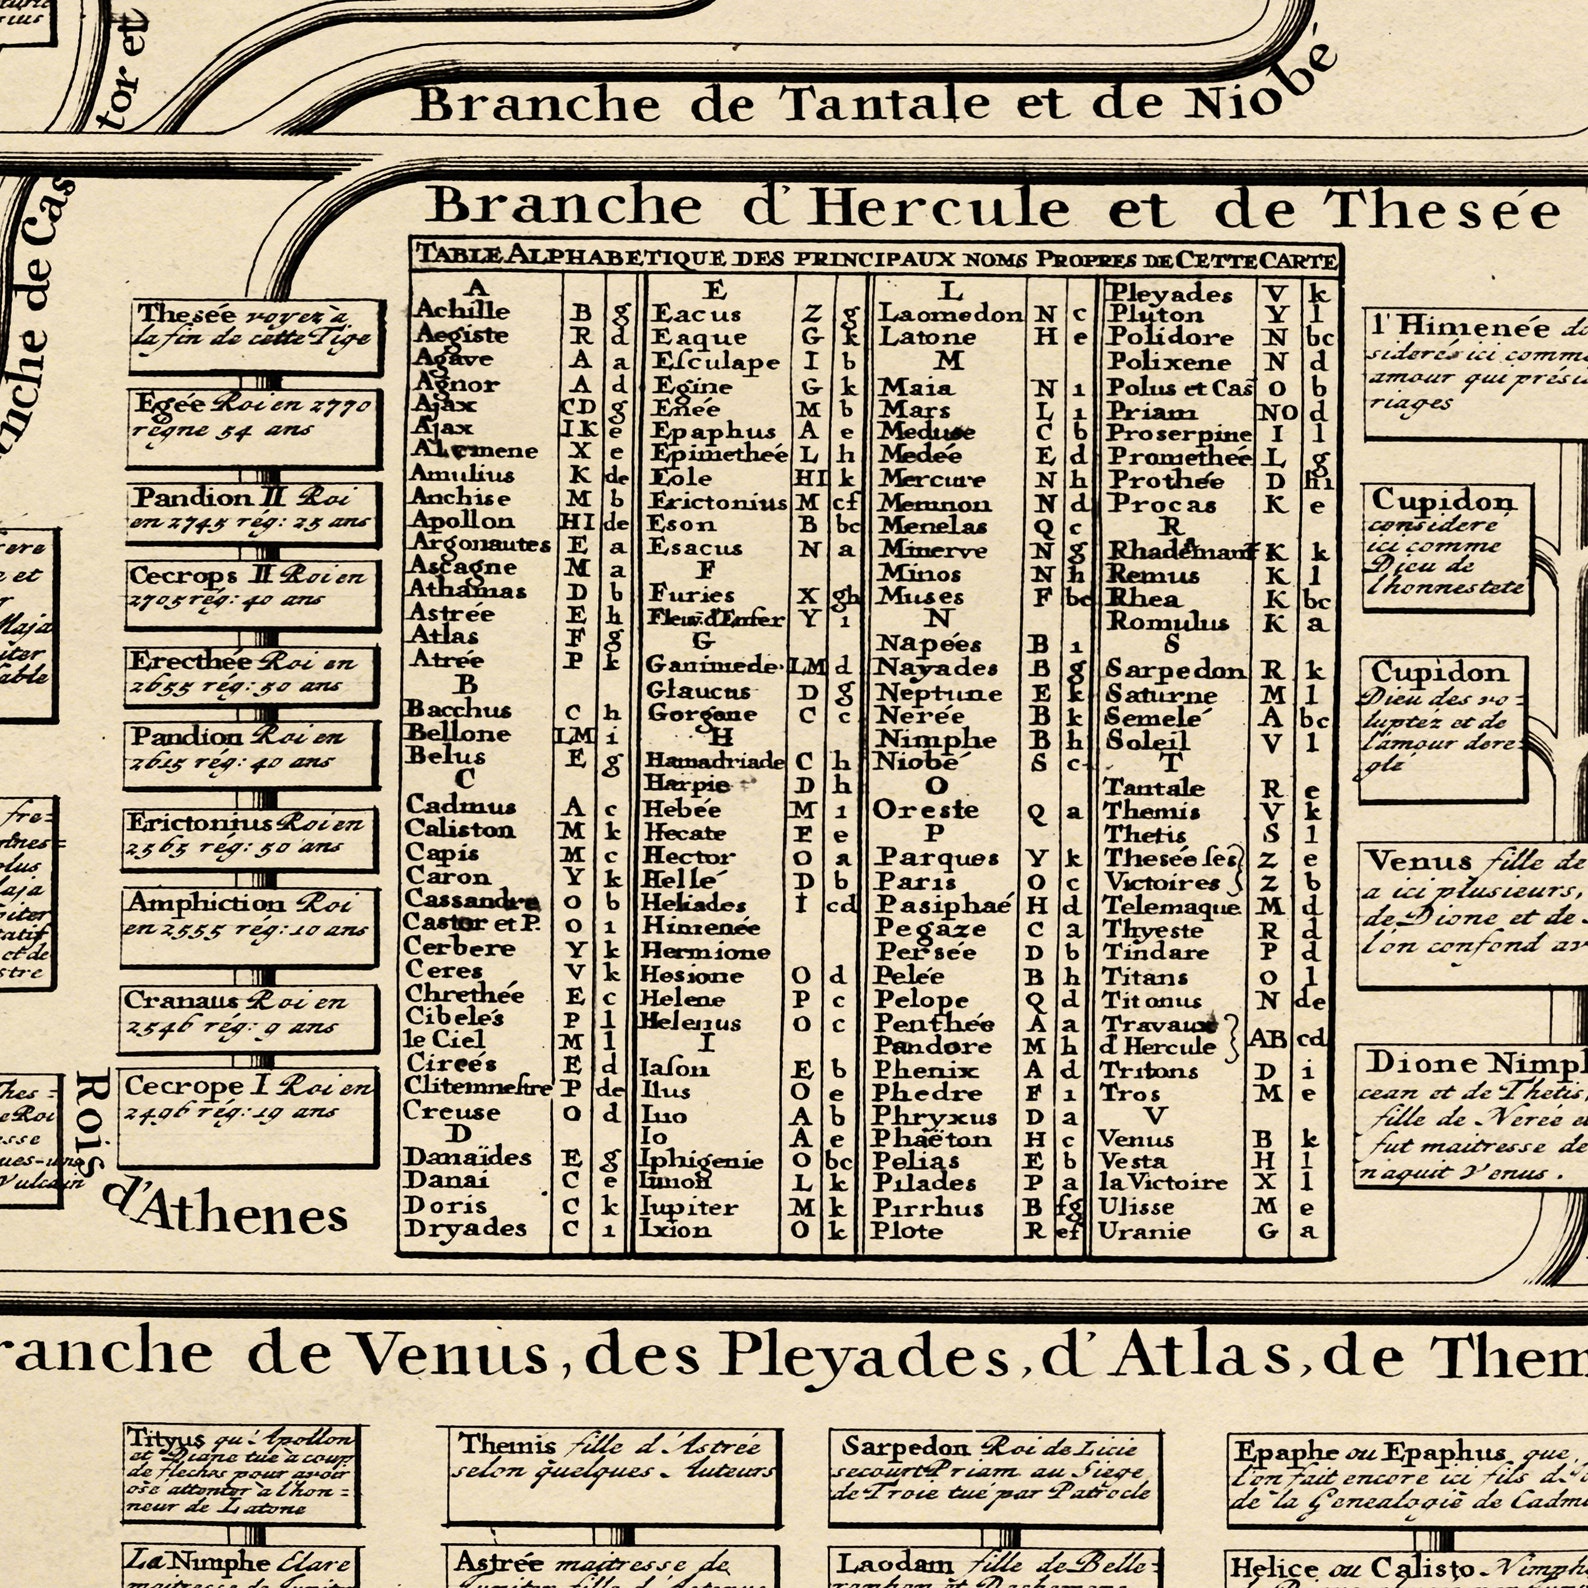 tor et
Branche de Tantale et de Niobé
anche de Cas
Branche d'Hercule et de Thesée
Thesée voyez à
la fin de cette Tige
Egée Roi en 2770
règne 54 ans
Pandion II Roi
en 2745 rég: 25 ans
Cecrops II Roi en
2705 rég: 40 ans
Erecthée Roi en
2655 rég: 50 ans
Pandion Roi en
2615 rég: 40 ans
Erictonius Roi en
2565 rég: 50 ans
Amphiction Roi
en 2555 rég: 10 ans
Cranaus Roi en
2546 rég: 9 ans
Cecrope I Roi en
2496 rég: 19 ans
Rois d'Athenes
TABLE ALPHABETIQUE DES PRINCIPAUX NOMS PROPRES DE CETTE CARTE
A
Achille B g
Aegiste R d
Agave A a
Agnor A d
Ajax CD g
Ajax IK e
Alcmene X e
Amulius K de
Anchise M b
Apollon HI de
Argonautes E a
Ascagne M a
Athamas D b
Astrée E h
Atlas F g
Atrée P k
B
Bacchus C h
Bellone LM i
Belus E g
C
Cadmus A c
Caliston M k
Capis M c
Caron Y k
Cassandre O b
Castor et P. O 1
Cerbere Y k
Ceres V k
Chrethée E c
Cibelés P l
le Ciel M l
Circés E d
Clitemneſtre P de
Creuse O d
D
Danaïdes E g
Danai C e
Doris C k
Dryades C 1
E
Eacus Z g
Eaque G k
Eſculape I b
Egine G k
Enée M b
Epaphus A e
Epimetheé L h
Eole HI k
Erictonius M cf
Eson B bc
Esacus N a
F
Furies X gh
Fleuv. d'Enfer Y 1
G
Ganimede LM d
Glaucus D g
Gorgone C c
H
Hamadriade C h
Harpie D h
Hebée M 1
Hecate F e
Hector O a
Hellé D b
Heliades I cd
Himenée
Hermione
Hesione O d
Helene P c
Helenus O c
I
Iaſon E b
Ilus O e
Ino A b
Io A e
Iphigenie O bc
Iunon L k
Iupiter M k
Ixion O k
L
Laomedon N c
Latone H e
M
Maia N 1
Mars L 1
Meduse C b
Medeé E d
Mercure N h
Memnon N d
Menelas Q c
Minerve N g
Minos N h
Muses F bc
N
Napées B 1
Nayades B g
Neptune E k
Nerée B k
Nimphe B h
Niobé S c
O
Oreste Q a
P
Parques Y k
Paris O c
Pasiphaé H d
Pegaze C a
Persée D b
Pelée B h
Pelope Q d
Penthée A a
Pandore M h
Phenix A d
Phedre F 1
Phryxus D a
Phaëton H c
Pelias E b
Pilades P a
Pirrhus B fg
Plote R ef
Pleyades V k
Pluton Y l
Polidore N bc
Polixene N d
Polus et Cas O b
Priam NO d
Proserpine I l
Promethée L g
Prothée D h1
Procas K e
R
Rhademant K k
Remus K l
Rhea K bc
Romulus K a
S
Sarpedon R k
Saturne M l
Semelé A bc
Soleil V l
T
Tantale R e
Themis V k
Thetis S l
Thesée ſes Z e
Victoires Z b
Telemaque M d
Thyeste R d
Tindare P d
Titans O l
Titonus N de
Travaux
d'Hercule AB cd
Tritons D i
Tros M e
V
Venus B k
Vesta H l
la Victoire X l
Ulisse M e
Uranie G a
l'Himenée
sideré ici comm
amour qui présid
riages
Cupidon
consideré
ici comme
Dieu de
l'honnesteté
Cupidon
Dieu des vo-
luptez et de
l'amour dere-
glé
Venus fille de
a ici plusieurs,
de Dione et de
l'on confond av
Dione Nimph
cean et de Thetis,
fille de Nerée e
fut maitresse de
naquit Venus.
ranche de Venus, des Pleyades, d'Atlas, de Them
Tityus qu'Apollon
et Diane tue à coup
de fleches pour avoir
osé attenter a l'hon=
neur de Latone
Themis fille d'Astrée
selon quelques Auteurs
Sarpedon Roi de Licie
secourt Priam au Siege
de Troie tué par Patrocle
Epaphe ou Epaphus que
l'on fait encore ici fils d
de la Genealogie de Cadm
La Nimphe Elare
Astrée maitresse de
Laodam fille de Belle-
Helice ou Calisto Nimph